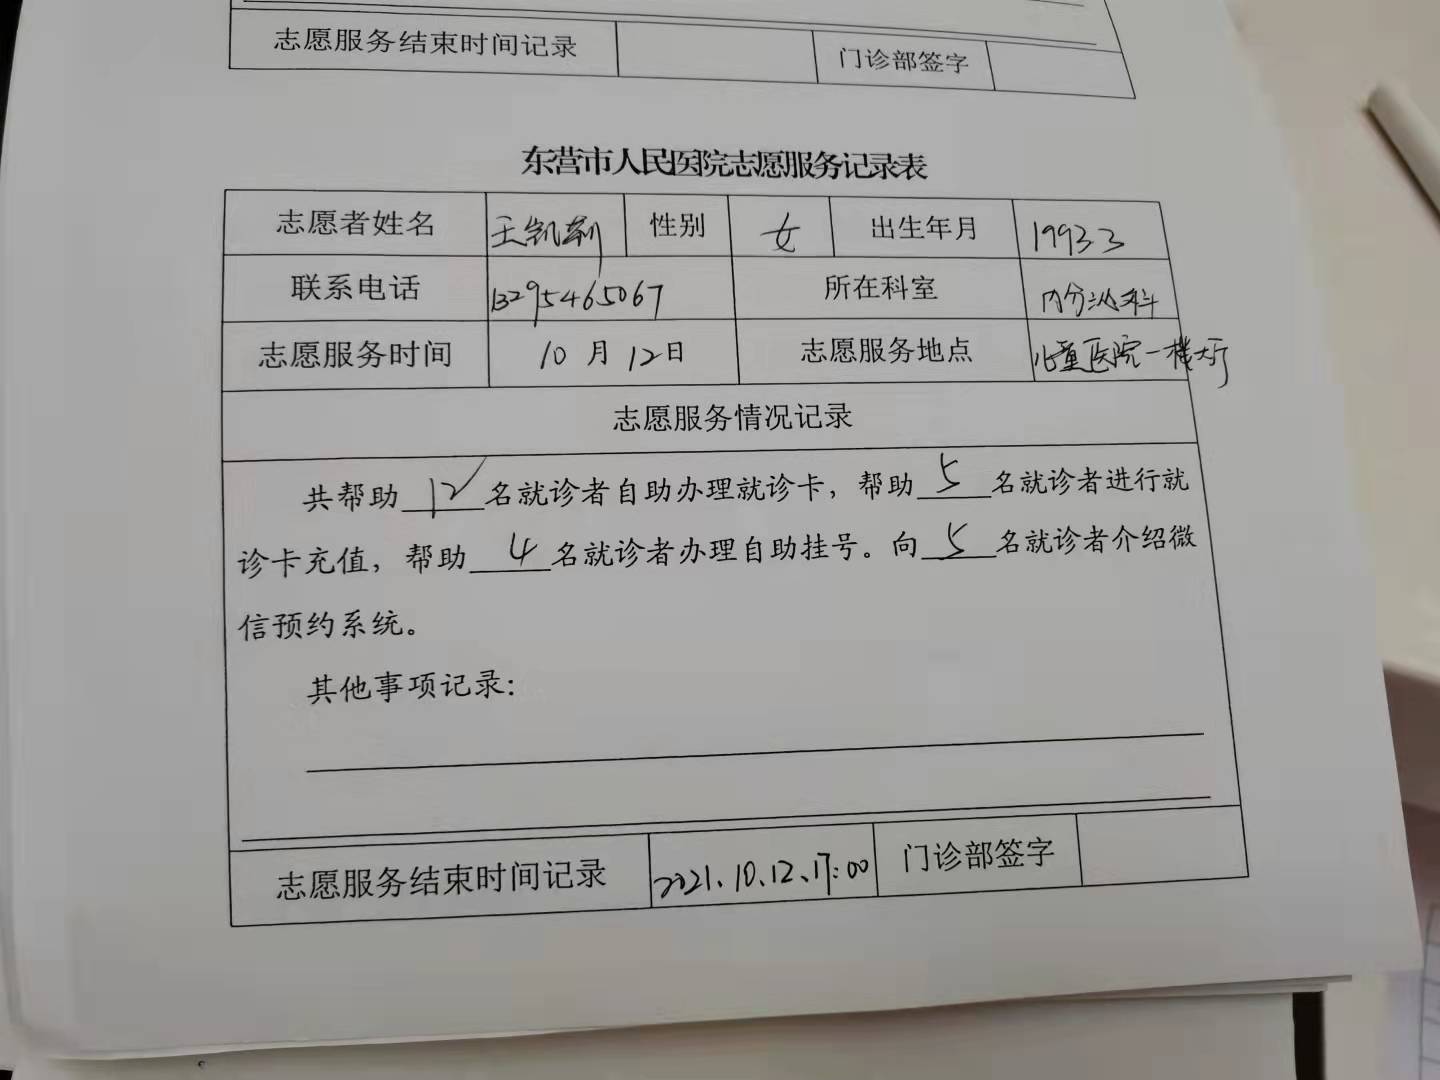 志愿服务结束时间记录 门诊部签字
东营市人民医院志愿服务记录表
志愿者姓名 王凯莉 性别 女 出生年月 1993.3
联系电话 13295465067 所在科室 内分泌科
志愿服务时间 10月12日 志愿服务地点 儿童医院一楼大厅
志愿服务情况记录
共帮助12名就诊者自助办理就诊卡，帮助5名就诊者进行就
诊卡充值，帮助4名就诊者办理自助挂号。向5名就诊者介绍微
信预约系统。
其他事项记录：
志愿服务结束时间记录 2021.10.12.17:00 门诊部签字